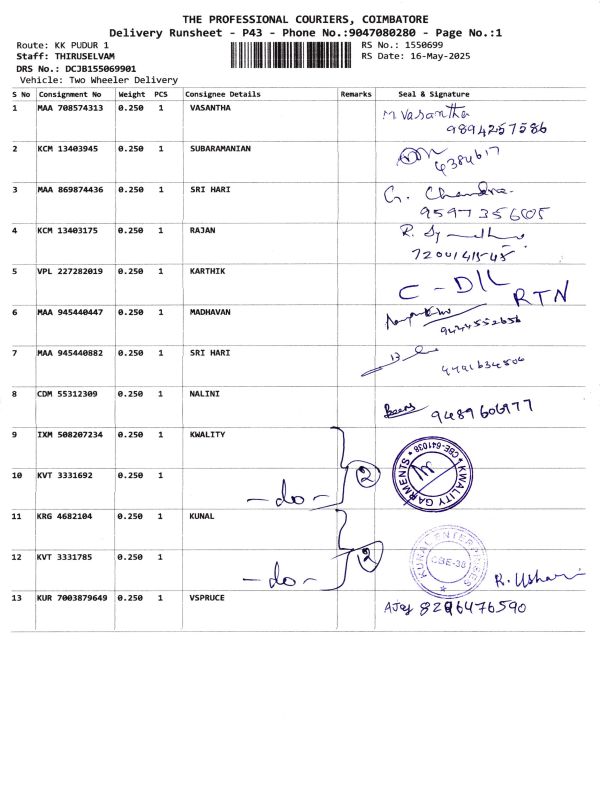 THE PROFESSIONAL COURIERS, COIMBATORE
Delivery Runsheet - P43 - Phone No.:9047080280 - Page No.:1
Route: KK PUDUR 1 RS No.: 1550699
Staff: THIRUSELVAM RS Date: 16-May-2025
DRS No.: DCJB155069901
Vehicle: Two Wheeler Delivery
S No Consignment No Weight PCS Consignee Details Remarks Seal & Signature
1 MAA 708574313 0.250 1 VASANTHA M Vasantha
9894257586
2 KCM 13403945 0.250 1 SUBARAMANIAN 6384617
3 MAA 869874436 0.250 1 SRI HARI G. Chandra.
9597356605
4 KCM 13403175 0.250 1 RAJAN R.
5 VPL 227282019 0.250 1 KARTHIK C - D/L RTN
6 MAA 945440447 0.250 1 MADHAVAN
9444552656
7 MAA 945440882 0.250 1 SRI HARI
8 CDM 55312309 0.250 1 NALINI 9489606977
9 IXM 508207234 0.250 1 KWALITY
KWALITY GARMENTS * CBE-641038 *
10 KVT 3331692 0.250 1 - do - 2
11 KRG 4682104 0.250 1 KUNAL
KUNAL ENTERPRISES
CBE-38
12 KVT 3331785 0.250 1 - do - 2 R. Usha
13 KUR 7003879649 0.250 1 VSPRUCE Ajay 8296476590